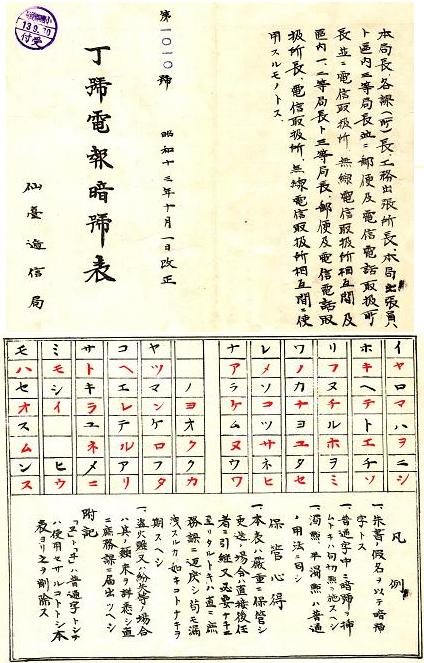 本局長、各課(所)長工務出張所長、本局出張員、
ト區内三等局長並ニ郵便及電信電話取扱所
長並ニ電信取扱所、無線電信取扱所相互間及
區内一、二等局長ト三等局長、郵便及電信電話取
扱所長、電信取扱所、無線電信取扱所相互間ニ使
用スルモノトス、
第1010號
昭和十三年十月一日改正
丁號電報暗號表
仙臺遞信局
付受
イヤロマハヲニシ
ホキヘテトエチソ
リフヌチルホヲミ
ワノカナヨユタセ
レメソコツサネヒ
ナアラケムヌウワ
ノヨオククカ
ヤツマンケロフタ
コヘエレテルアリ
サトキラユネメニ
ミモシイヒウ
モハセオスムンス
凡例
一、朱書ノ假名ヲ以テ暗號
字トス
一、普通字中ニ暗號ヲ挿
ムトキハ句切點ヲ施スヘシ
一、濁點、半濁點ハ普通
ノ用法ニ同シ
保管心得
一、本表ハ嚴重ニ保管シ
更迭ノ場合直接後任
者ニ引繼又必要ナキニ
至リタルトキハ直ニ庶
務課ニ返戻シ苟モ漏
洩スルカ如キコトナキヲ
期スヘシ
一、盗火難又ハ紛失等ノ場合
ハ其ノ顛末ヲ詳悉シ直
ニ庶務課ニ届出ツヘシ
附記
「ヱ」「ヰ」ハ普通字トシテ
ハ使用セザルコトトシ本
表ヨリ之ヲ削除ス